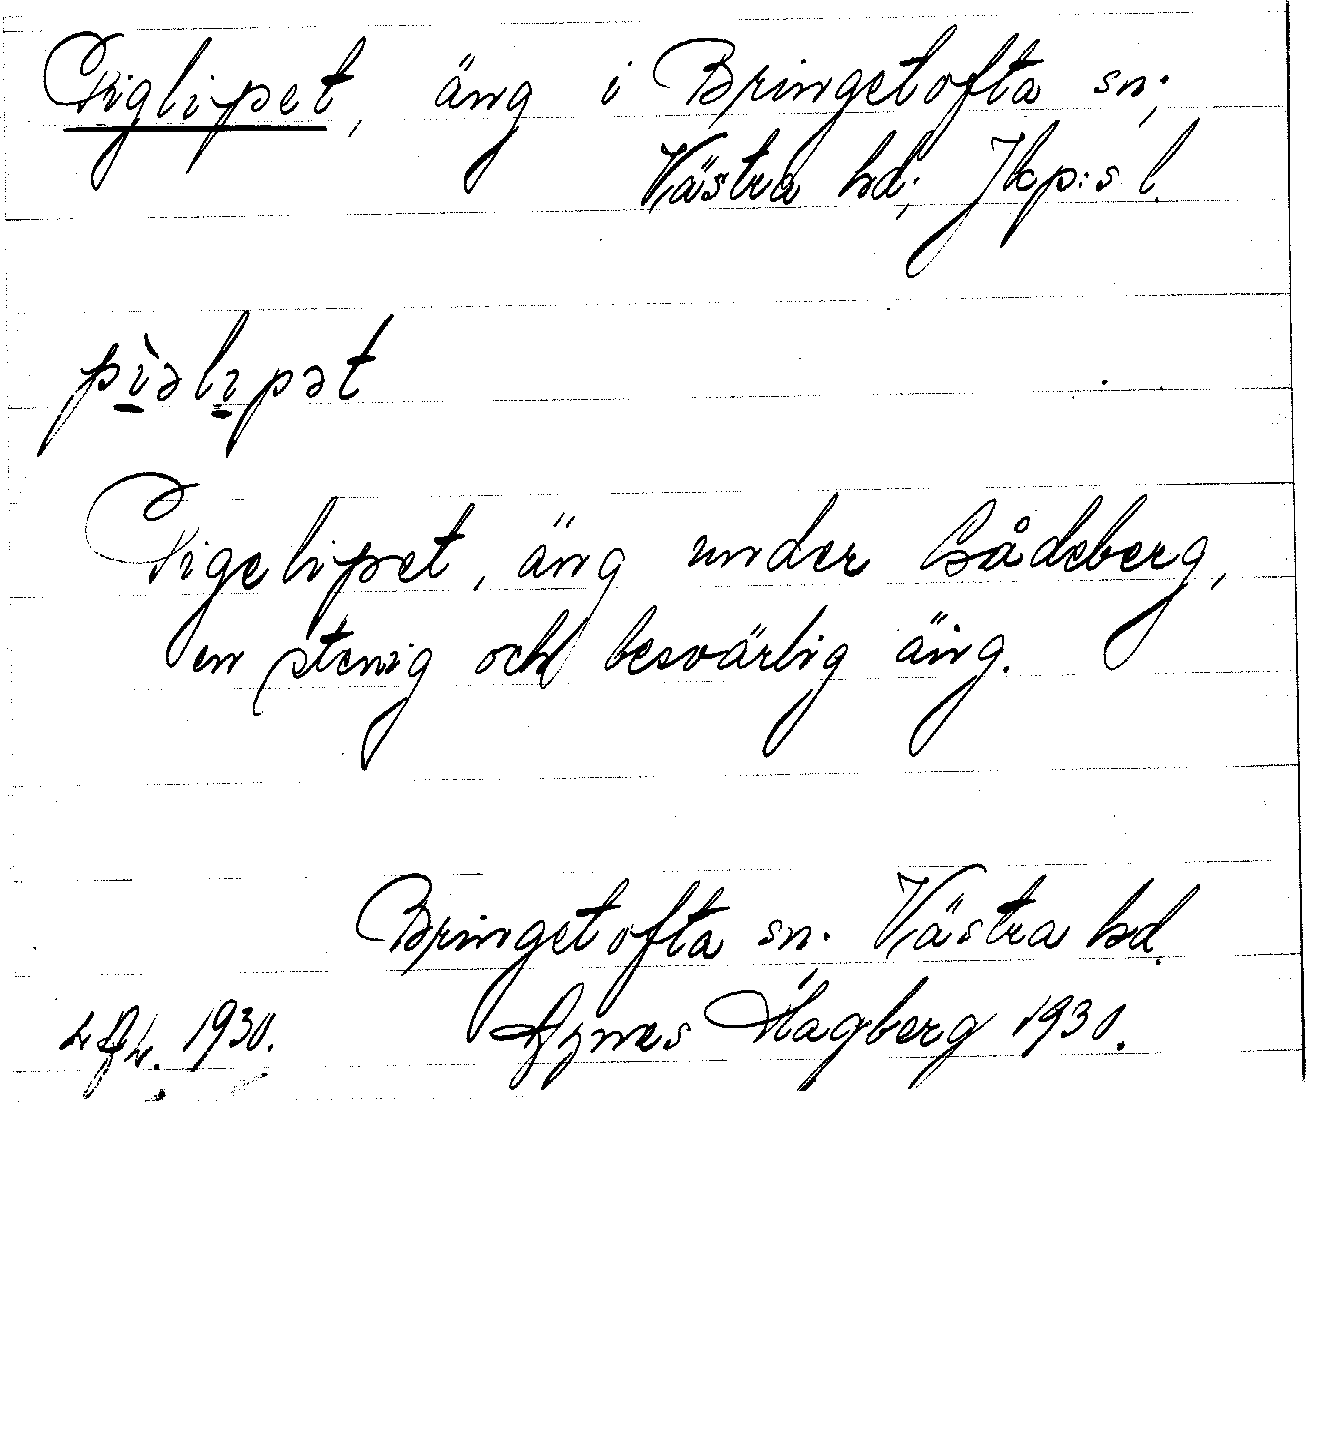 Piglipet, äng i Bringetofta sn;
Västra hd; Jkp:s l.
pìəlıpət
Pigelipet, äng under
en stenig och besvärlig äng.
Bringetofta sn. Västra hd.
1930. Agnes Hagberg 1930.